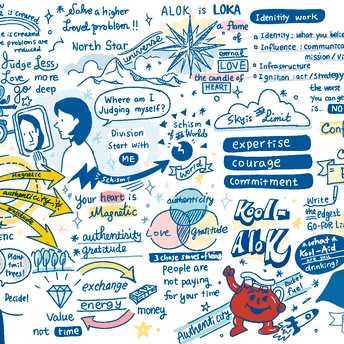 Solve a higher
Level problem !!
ALOK is LOKA
a flame
of
eternal
LOVE
the candle of
HEART
Identity work
Identity : what you belie
Influence : communica
mission / vi
Infrastructure
Ignition : act / strategy
the worst
you can
is... NO
problems are
reduced
North Star
universe
Judge Less
Love more
Go deep
Where am I
Judging myself?
Division
Start with
ME
schism
schism
of
Worlds
world
Sky is Limit
expertise
courage
commitment
MAGNETIC
authenticity
gratitude
Your heart is
Magnetic
authenticity
gratitude
authenticity
Love
gratitude
Kool-
ALOK
Write
the edgest
Go-For Li
what
Kool-Aid
are you
drinking?
Rocket
fuel
Plant
trees!
Decide!
exchange
energy
Value
money
not time
People are
not paying
for your time
Authenticity